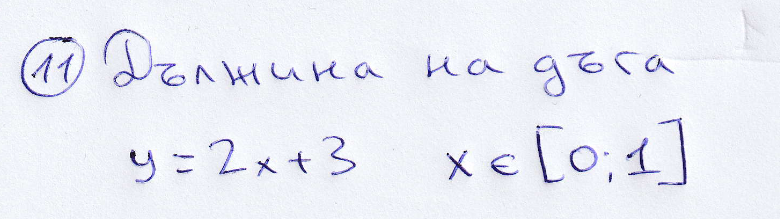 11 Дължина на дъга
y = 2x + 3 x ∈ [0; 1]